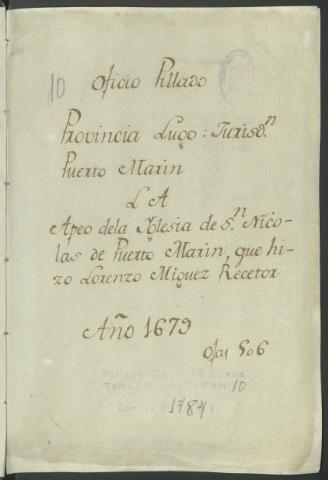 10
Oficio Pillado
Provincia Lugo: Jurisdn.
Puerto Marin
L A
Apeo dela Yglesia de Sn. Nico-
las de Puerto Marin, que hi-
zo Lorenzo Miguez Recetor
Año 1679
Ojas 506
10
(1784)